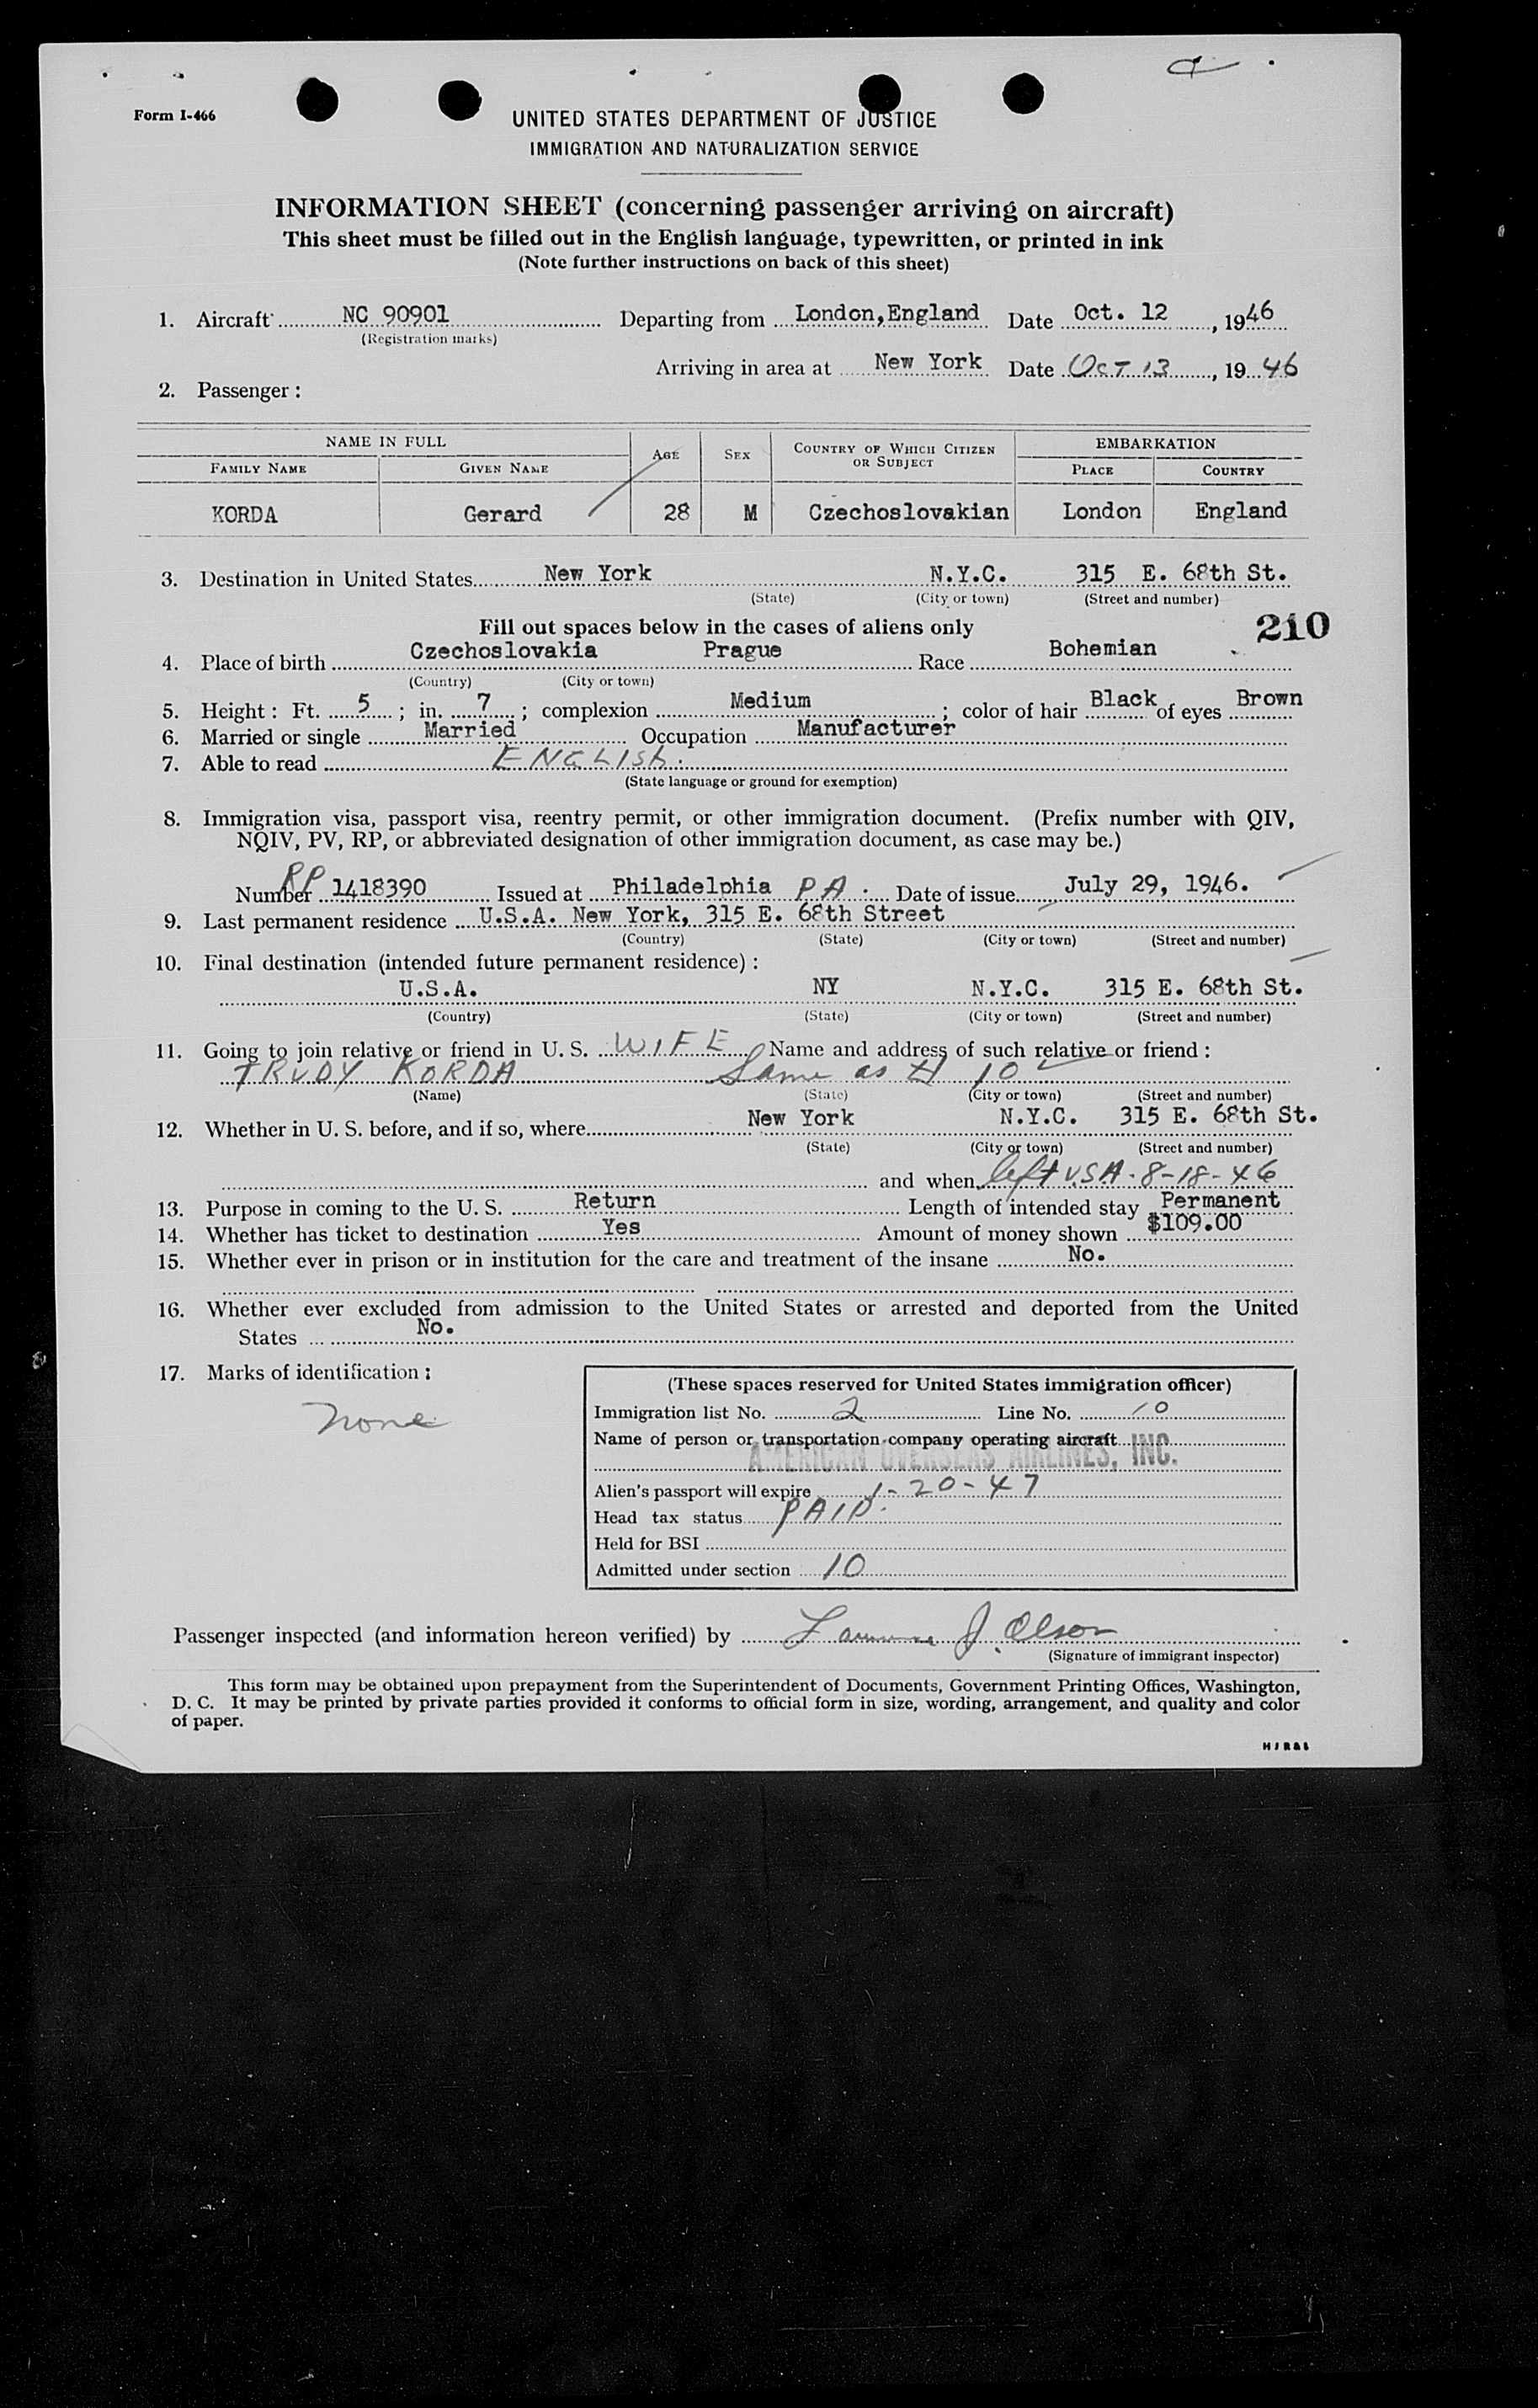 Form I-466
UNITED STATES DEPARTMENT OF JUSTICE
IMMIGRATION AND NATURALIZATION SERVICE
INFORMATION SHEET (concerning passenger arriving on aircraft)
This sheet must be filled out in the English language, typewritten, or printed in ink
(Note further instructions on back of this sheet)
1. Aircraft NC 90901 Departing from London, England Date Oct. 12, 1946
(Registration marks)
Arriving in area at New York Date Oct 13, 1946
2. Passenger:
NAME IN FULL AGE SEX COUNTRY OF WHICH CITIZEN OR SUBJECT EMBARKATION
FAMILY NAME GIVEN NAME PLACE COUNTRY
KORDA Gerard 28 M Czechoslovakian London England
3. Destination in United States New York N.Y.C. 315 E. 68th St.
(State) (City or town) (Street and number)
Fill out spaces below in the cases of aliens only 210
4. Place of birth Czechoslovakia Prague Race Bohemian
(Country) (City or town)
5. Height: Ft. 5; in. 7; complexion Medium; color of hair Black of eyes Brown
6. Married or single Married Occupation Manufacturer
7. Able to read ENGLISh.
(State language or ground for exemption)
8. Immigration visa, passport visa, reentry permit, or other immigration document. (Prefix number with QIV,
NQIV, PV, RP, or abbreviated designation of other immigration document, as case may be.)
Number RP 1418390 Issued at Philadelphia PA. Date of issue July 29, 1946.
9. Last permanent residence U.S.A. New York, 315 E. 68th Street
(Country) (State) (City or town) (Street and number)
10. Final destination (intended future permanent residence):
U.S.A. NY N.Y.C. 315 E. 68th St.
(Country) (State) (City or town) (Street and number)
11. Going to join relative or friend in U. S. WIFE Name and address of such relative or friend:
TRUDY KORDA Same as # 10
(Name) (State) (City or town) (Street and number)
12. Whether in U. S. before, and if so, where New York N.Y.C. 315 E. 68th St.
(State) (City or town) (Street and number)
and when left USA. 8-18-46
13. Purpose in coming to the U. S. Return Length of intended stay Permanent
14. Whether has ticket to destination Yes Amount of money shown $109.00
15. Whether ever in prison or in institution for the care and treatment of the insane No.
16. Whether ever excluded from admission to the United States or arrested and deported from the United
States No.
17. Marks of identification:
None
(These spaces reserved for United States immigration officer)
Immigration list No. 2 Line No. 10
Name of person or transportation company operating aircraft
AMERICAN OVERSEAS AIRLINES, INC.
Alien's passport will expire 1-20-47
Head tax status PAID.
Held for BSI
Admitted under section 10
Passenger inspected (and information hereon verified) by Lawrence J. Olson
(Signature of immigrant inspector)
This form may be obtained upon prepayment from the Superintendent of Documents, Government Printing Offices, Washington,
D. C. It may be printed by private parties provided it conforms to official form in size, wording, arrangement, and quality and color
of paper.